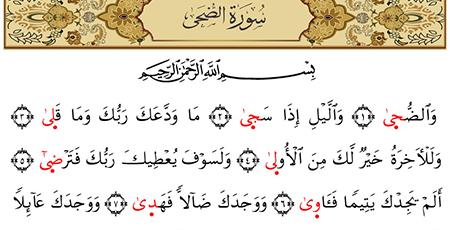 سُورَةُ الضُّحَى
بِسْمِ اللَّهِ الرَّحْمَٰنِ الرَّحِيمِ
وَٱلضُّحَىٰ ﴿١﴾ وَٱلَّيْلِ إِذَا سَجَىٰ ﴿٢﴾ مَا وَدَّعَكَ رَبُّكَ وَمَا قَلَىٰ ﴿٣﴾
وَلَلْأَخِرَةُ خَيْرٌ لَّكَ مِنَ ٱلْأُولَىٰ ﴿٤﴾ وَلَسَوْفَ يُعْطِيكَ رَبُّكَ فَتَرْضَىٰٓ ﴿٥﴾
أَلَمْ يَجِدْكَ يَتِيمًا فَـَٔاوَىٰ ﴿٦﴾ وَوَجَدَكَ ضَآلًّا فَهَدَىٰ ﴿٧﴾ وَوَجَدَكَ عَآئِلًا